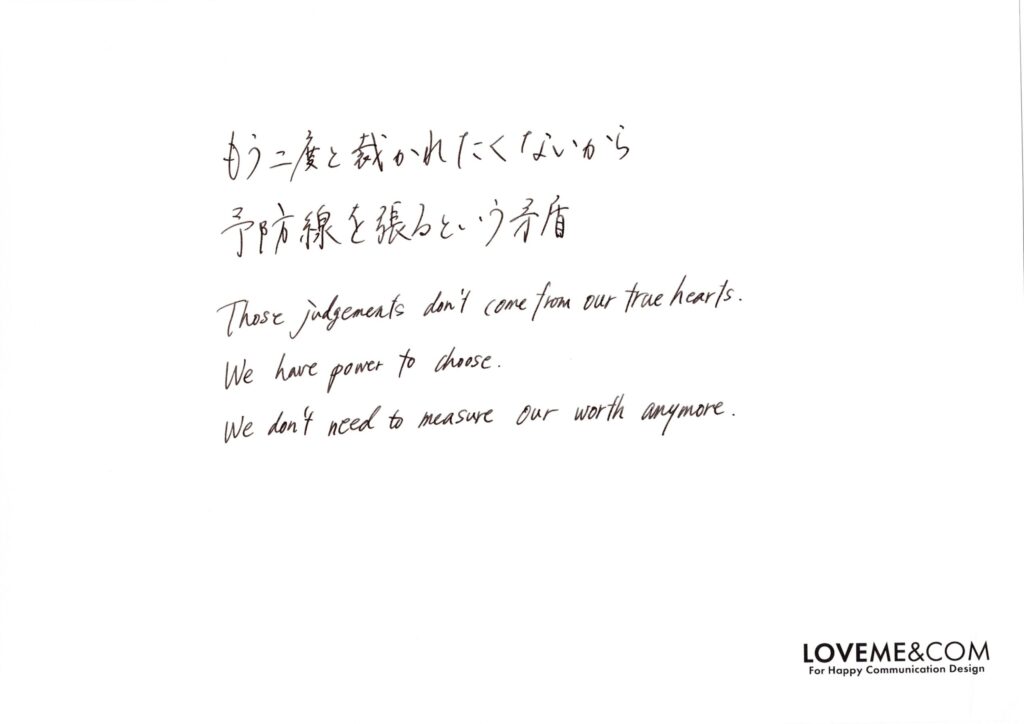 もう二度と裁かれたくないから
予防線を張るという矛盾
Those judgements don't come from our true hearts.
We have power to choose.
We don't need to measure our worth anymore.
LOVEME&COM
For Happy Communication Design